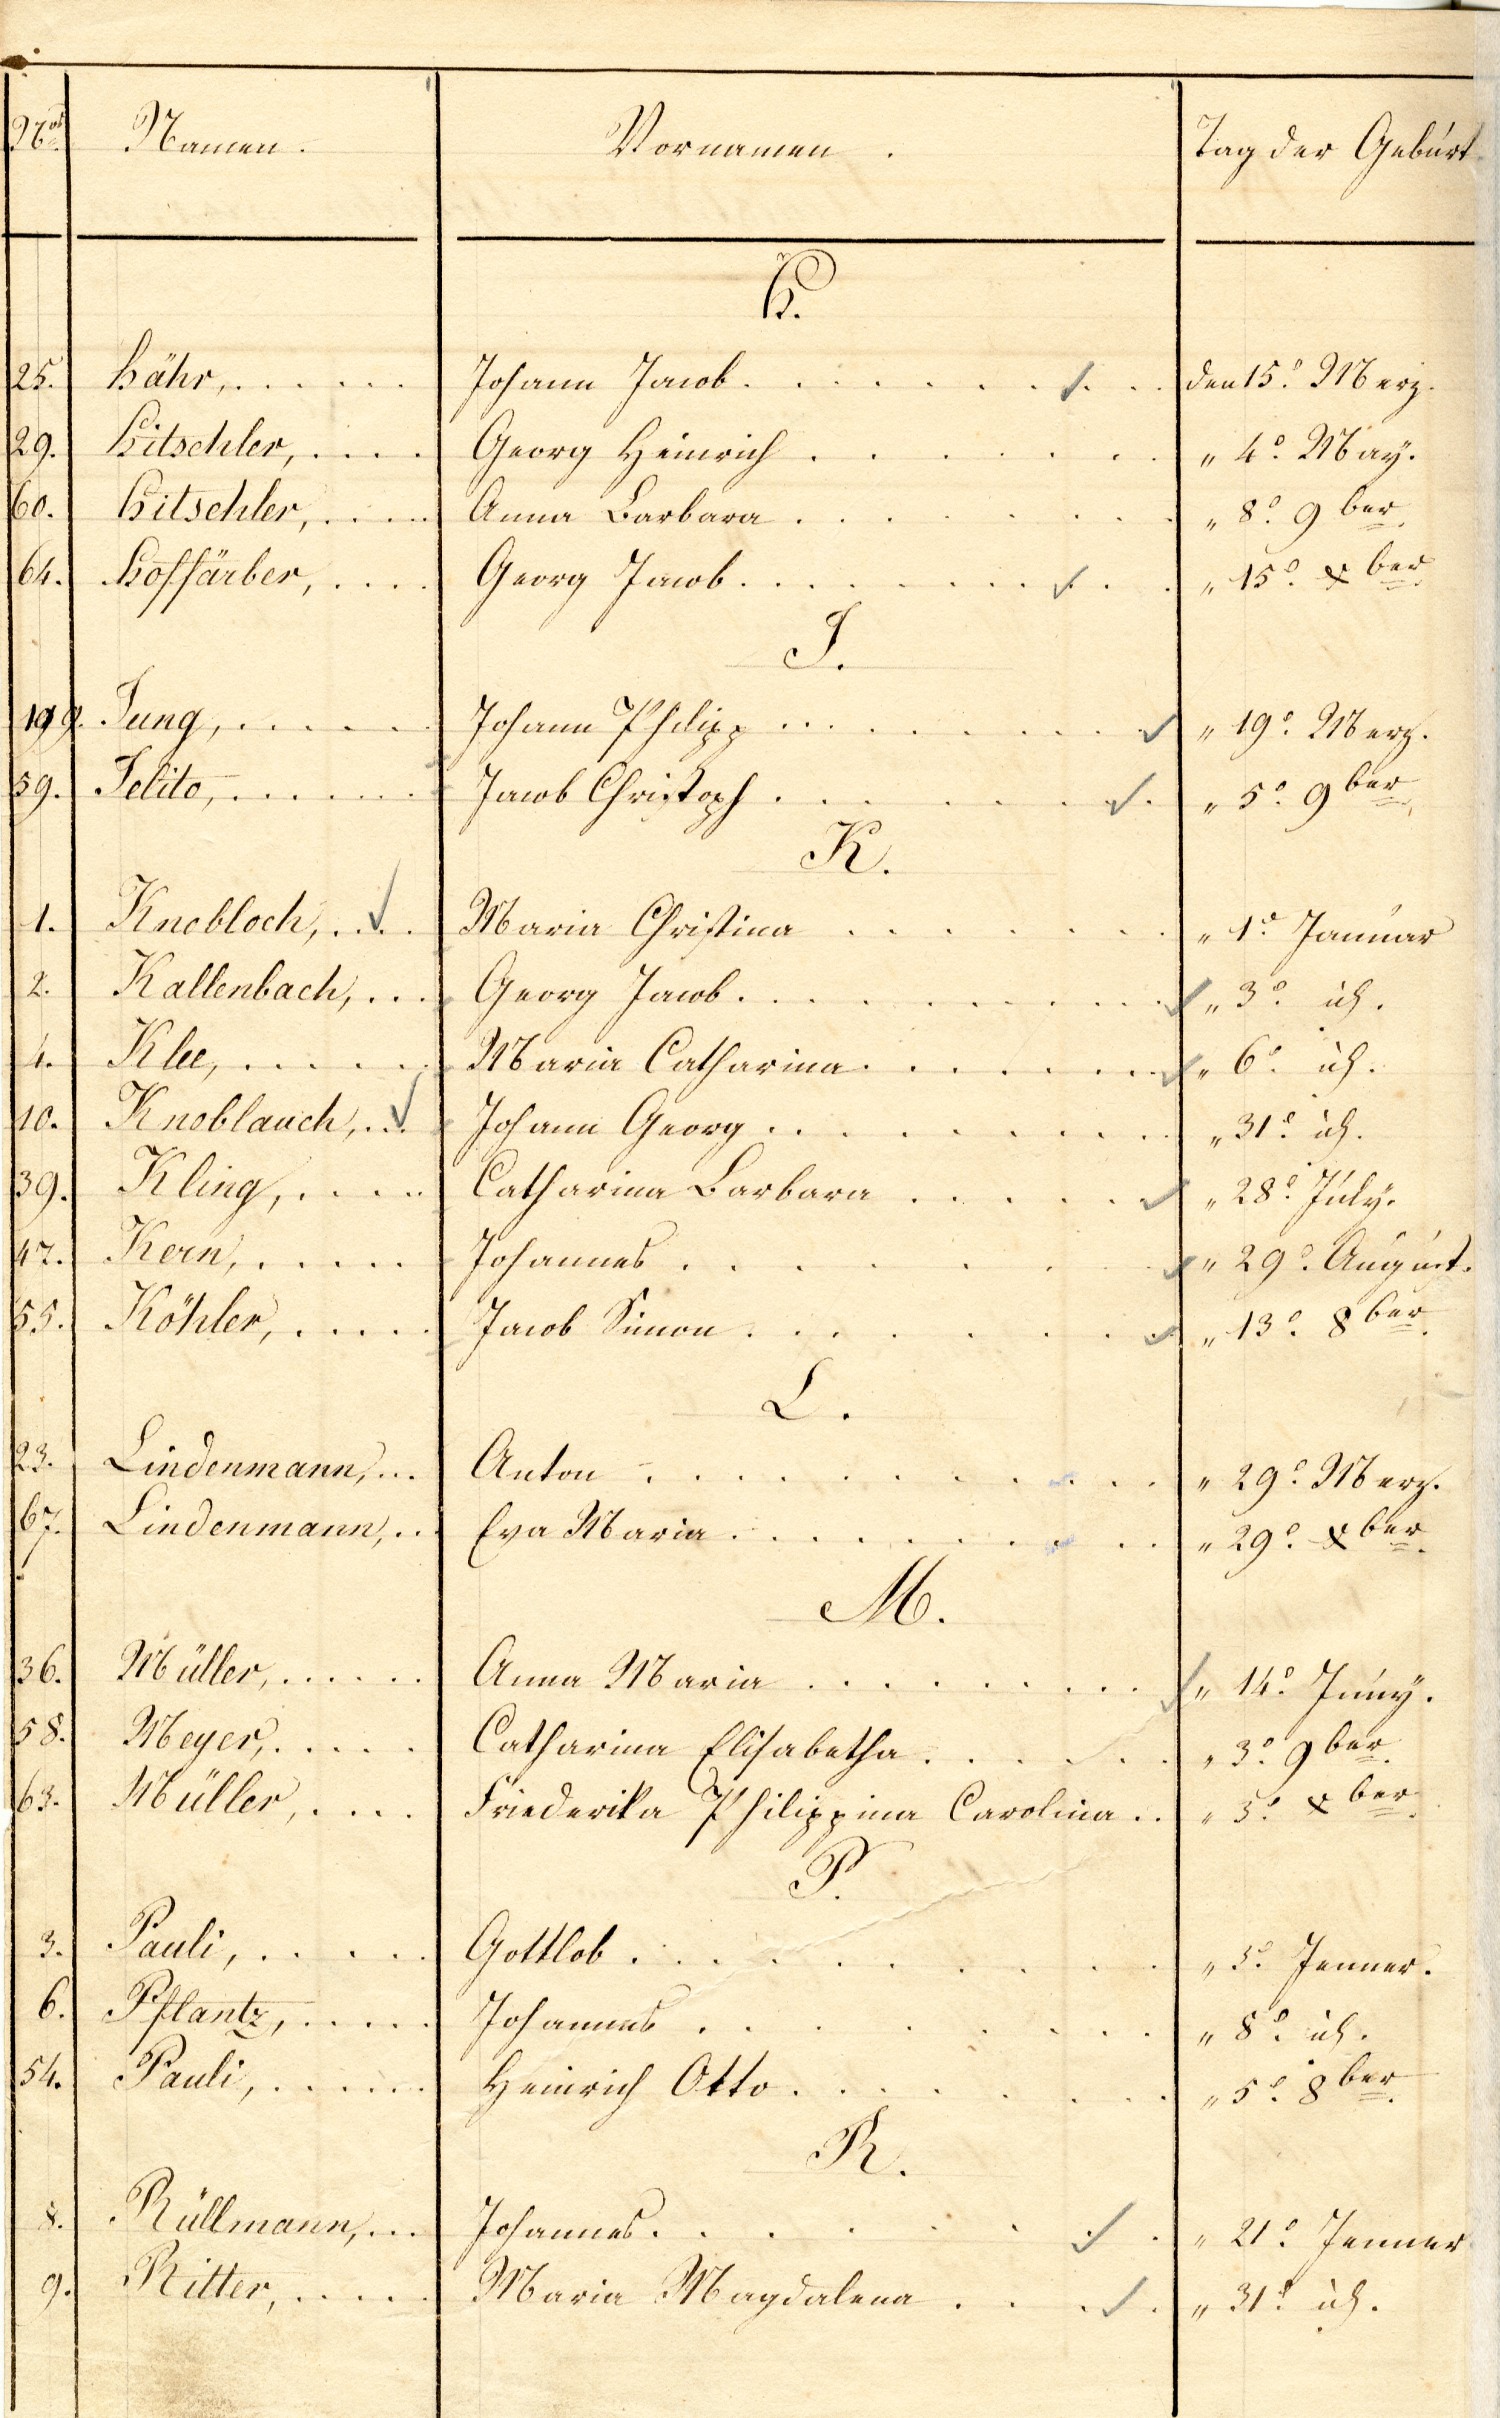 Nos Namen. Vornamen. Tag der Geburt
H.
25. Hähr, . . . . . . Johann Jacob . . . . . . . . . den 15.t Merz.
29. Hitschler, . . . . Georg Heinrich . . . . . . . " 4.t May.
60. Hitschler, . . . . . Anna Barbara . . . . . . . " 8.t 9ber.
64. Hoffärber, . . . . Georg Jacob . . . . . . . . . " 15.t Xber.
J.
19. Jung, . . . . . Johann Philipp . . . . . . . . " 19.t Merz.
59. Jelito, . . . . . . Jacob Christoph . . . . . . . . " 5.t 9ber.
K.
1. Knobloch, . . . . Maria Christina . . . . . . . " 1.t Januar
2. Kallenbach, . . . Georg Jacob . . . . . . . . . " 3.t id.
4. Klee, . . . . . Maria Catharina . . . . . . . " 6.t id.
10. Knoblauch, . . . Johann Georg . . . . . . . . . " 31.t id.
39. Kling, . . . . . Catharina Barbara . . . . . . " 28.t July.
47. Kern, . . . . . Johannes . . . . . . . . " 29.t August.
55. Köhler, . . . . . Jacob Simon . . . . . . . . " 13.t 8ber.
L.
23. Lindenmann, . . . Anton . . . . . . . . . . " 29.t Merz.
67. Lindenmann, . . Eva Maria . . . . . . . . . " 29.t Xber.
M.
36. Müller, . . . . . . Anna Maria . . . . . . . . . " 14.t Juny.
58. Meyer, . . . . . Catharina Elisabetha . . . . . . " 3.t 9ber.
63. Müller, . . . . Friederika Philippina Carolina . . " 3.t Xber.
P.
3. Pauli, . . . . . Gottlob . . . . . . . . . . " 5.t Jenner.
6. Pflantz, . . . . . Johannes . . . . . . . . . " 8.t id.
54. Pauli, . . . . . . Heinrich Otto . . . . . . . . " 5.t 8ber.
R.
8. Rüllmann, . . . Johannes . . . . . . . . " 21.t Jenner
9. Ritter, . . . . . Maria Magdalena . . . . " 31.t id.